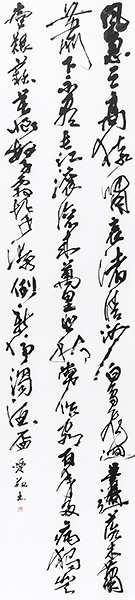 風急天高猿嘯哀渚清沙白鳥飛迴無邊落木蕭
蕭下不盡長江滾滾來萬里悲秋常作客百年多病獨登
臺艱難苦恨繁霜鬢潦倒新停濁酒杯